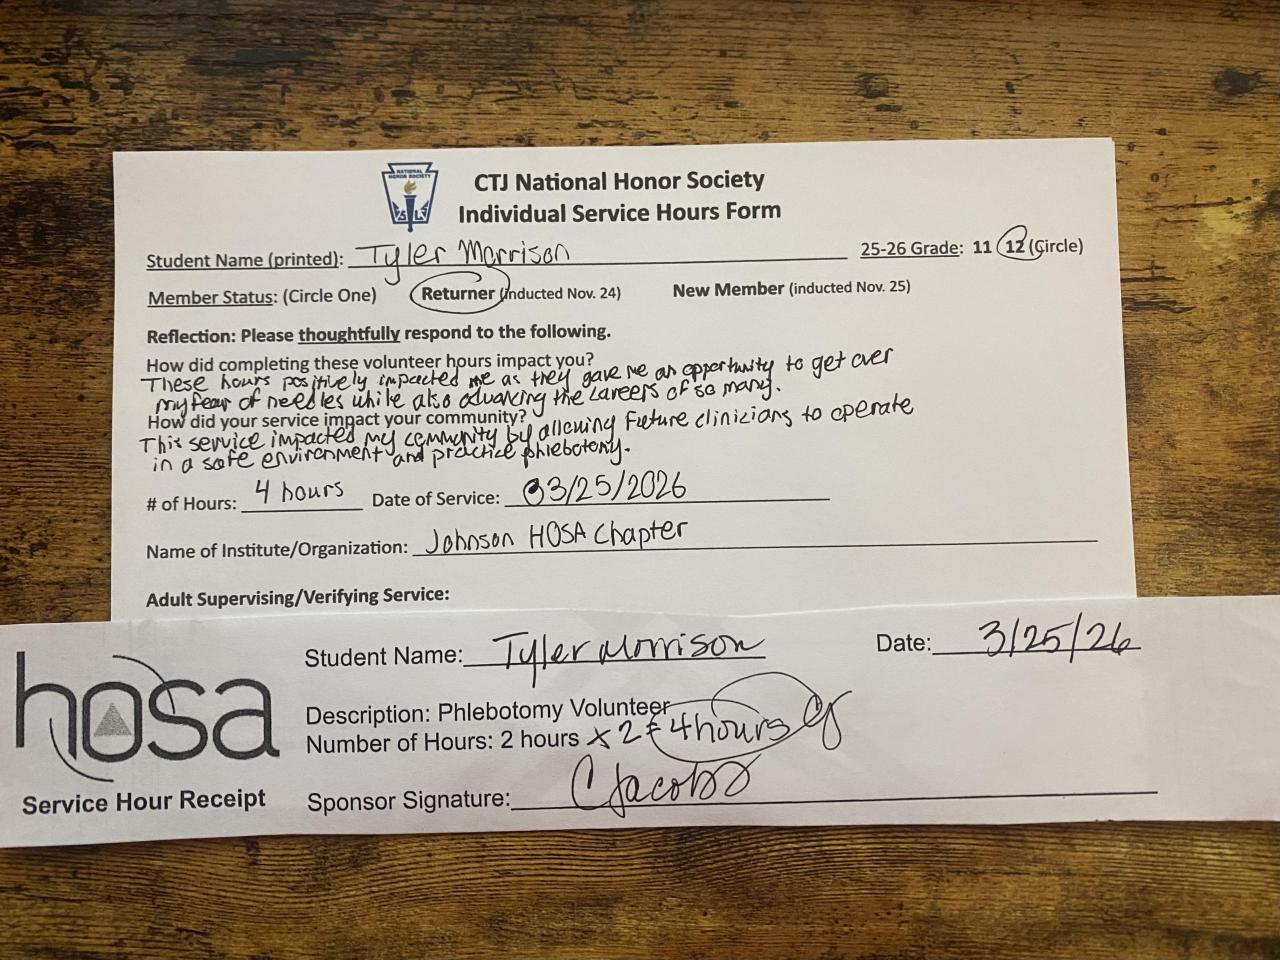 NATIONAL
HONOR SOCIETY
CTJ National Honor Society
Individual Service Hours Form
Student Name (printed): Tyler Morrison 25-26 Grade: 11 12 (Circle)
Member Status: (Circle One) Returner (inducted Nov. 24) New Member (inducted Nov. 25)
Reflection: Please thoughtfully respond to the following.
How did completing these volunteer hours impact you?
These hours positively impacted me as they gave me an opportunity to get over
my fear of needles while also advancing the careers of so many.
How did your service impact your community?
This service impacted my community by allowing future clinicians to operate
in a safe environment and practice phlebotomy.
# of Hours: 4 hours Date of Service: 03/25/2026
Name of Institute/Organization: Johnson HOSA Chapter
Adult Supervising/Verifying Service:
hosa
Service Hour Receipt
Student Name: Tyler Morrison Date: 3/25/26
Description: Phlebotomy Volunteer
Number of Hours: 2 hours x 2 = 4 hours CJ
Sponsor Signature: C Jacobs